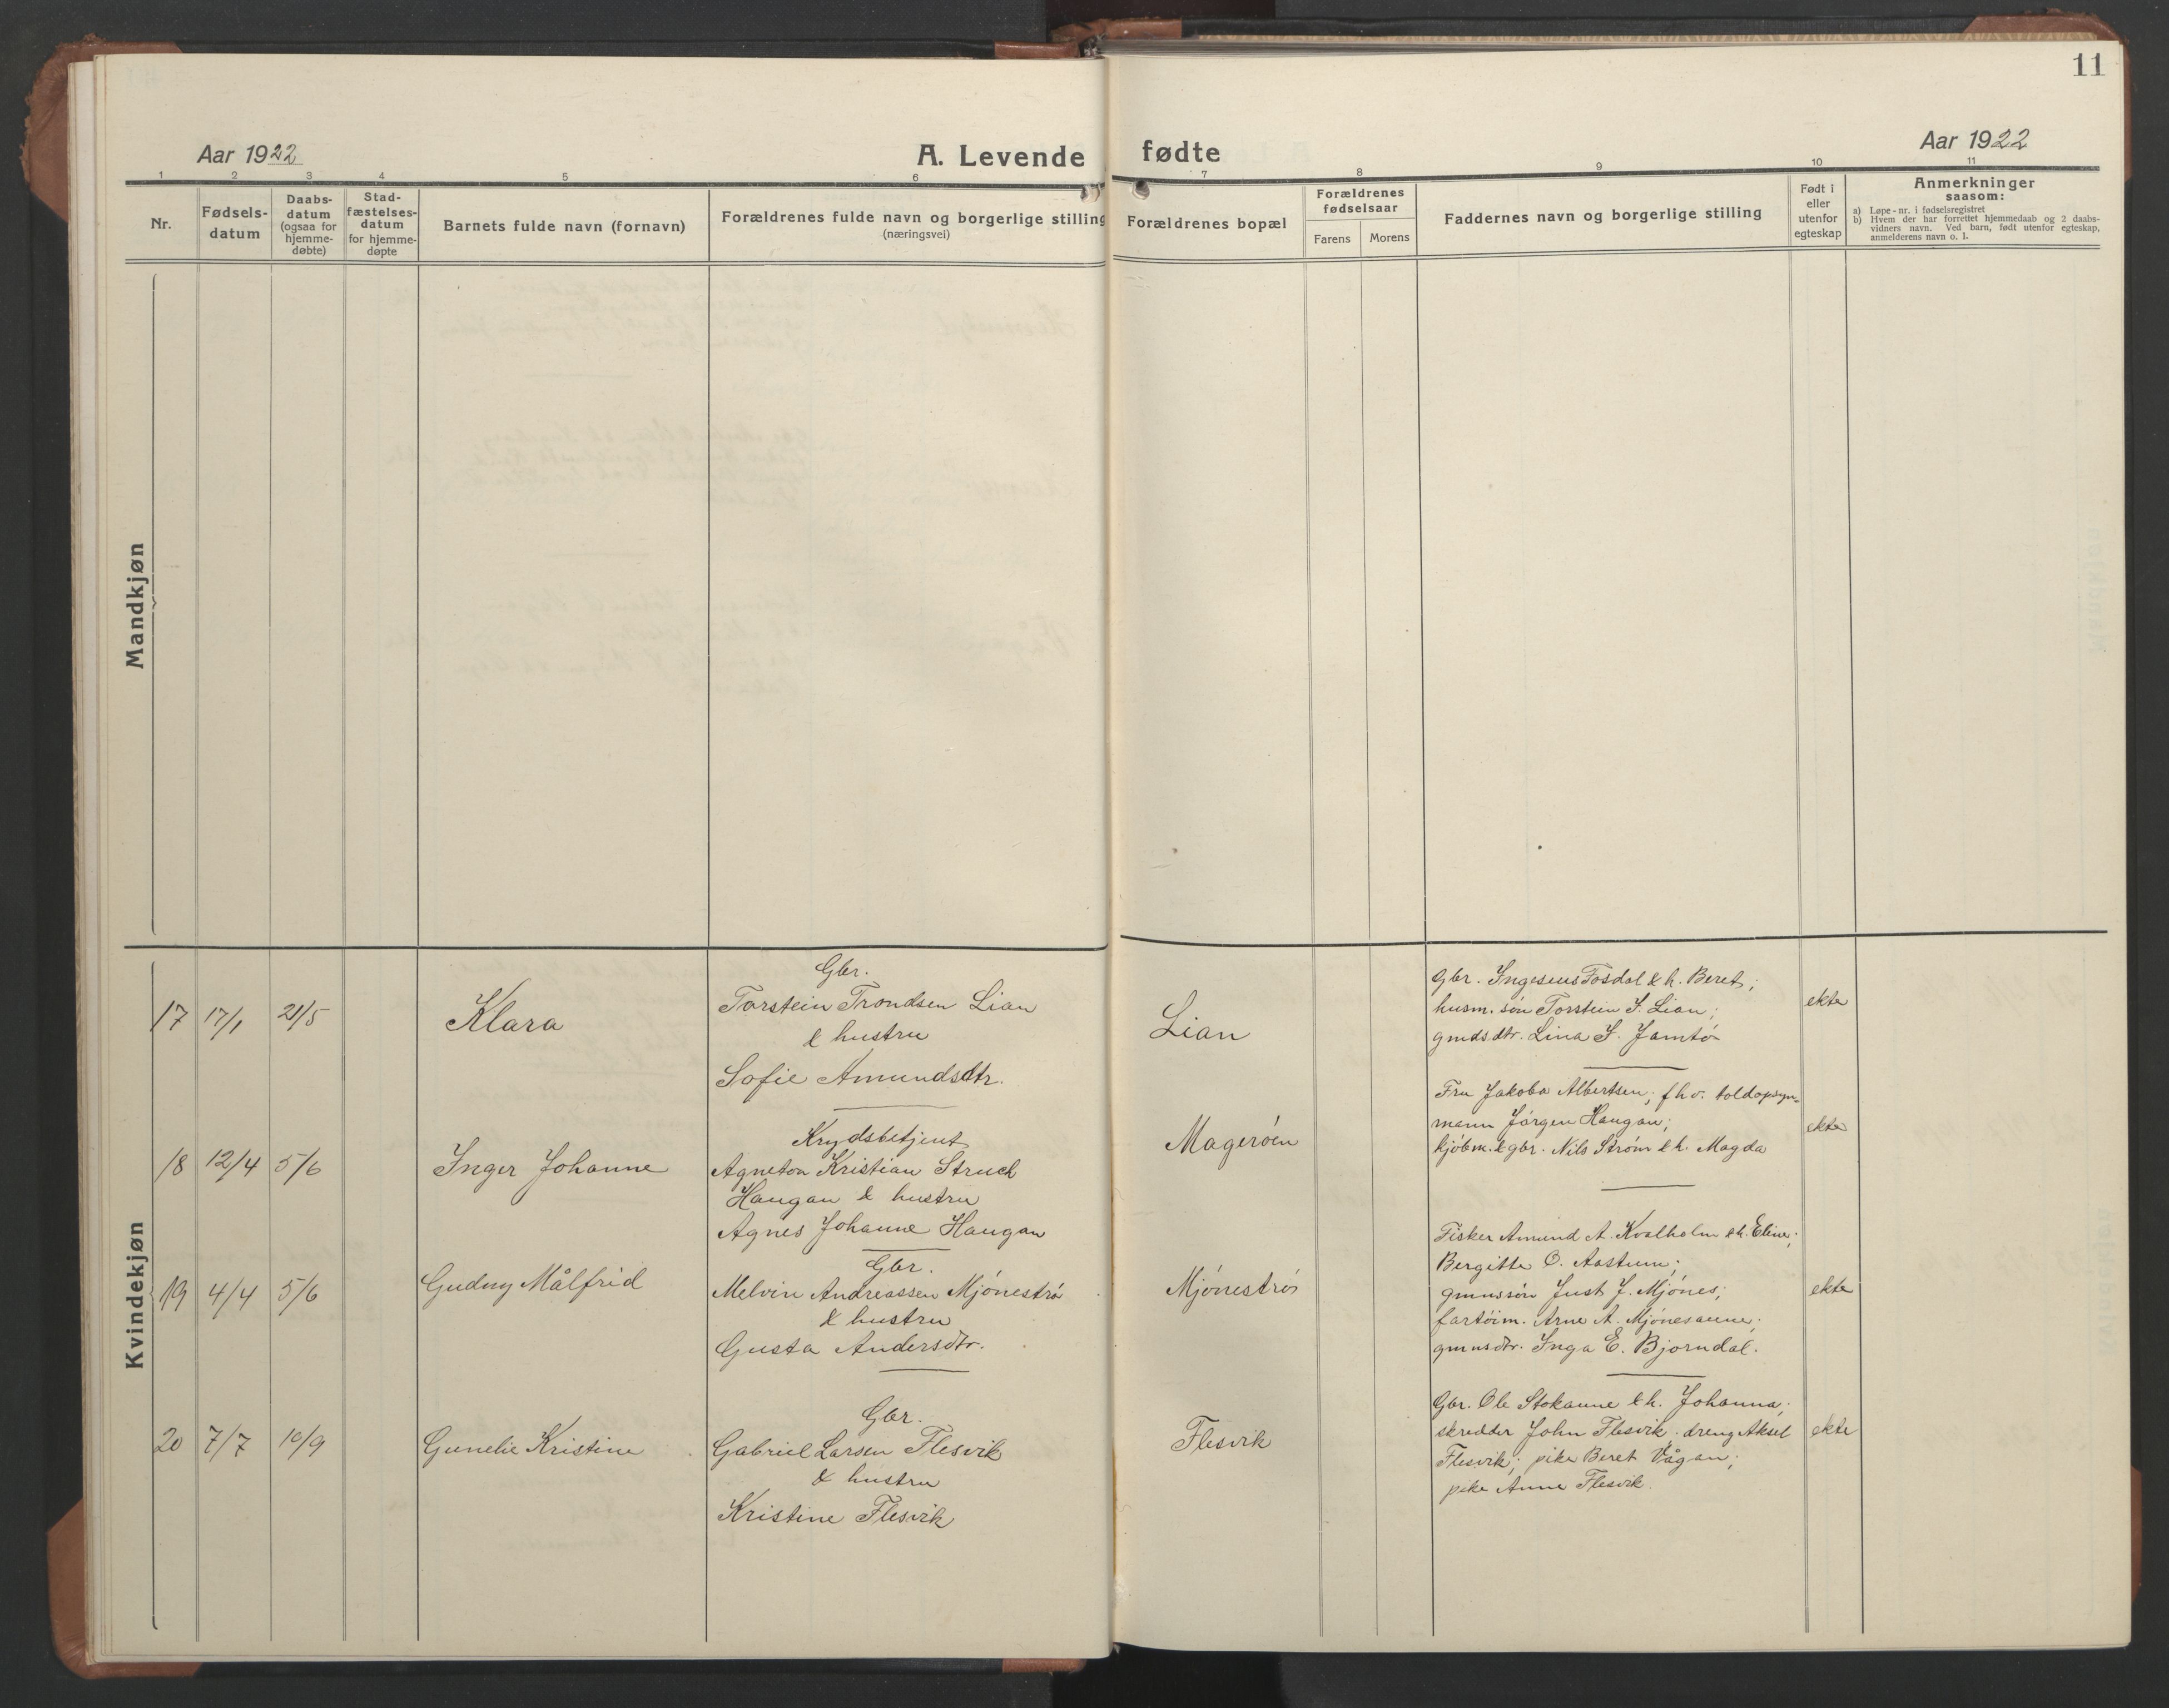 11
Aar 1922
A. Levende fødte
Aar 1922
1 2 3 4 5 6 7 8 9 10 11
Nr.
Fødsels-
datum
Daabs-
datum
(ogsaa for
hjemme-
døbte)
Stad-
fæstelses-
datum
for hjemme-
døpte
Barnets fulde navn (fornavn)
Forældrenes fulde navn og borgerlige stilling
(næringsvei)
Forældrenes bopæl
Forældrenes
fødselsaar
Farens Morens
Faddernes navn og borgerlige stilling
Født i
eller
utenfor
egteskap
Anmerkninger
saasom:
a) Løpe-nr. i fødselsregistret
b) Hvem der har forrettet hjemmedaab og 2 daabs-
vidners navn. Ved barn, født utenfor egteskap,
anmelderens navn o. l.
Mandkjøn
Kvindekjøn
17 17/1 21/5 Klara
Gbr.
Torstein Trondsen Lian
& hustru
Sofie Amundsdtr.
Lian
Gbr. Ingesius Fosdal & h. Beret;
husm. søn Torstein I. Lian;
gmds.dtr. Lina I. Jamtö
ekte
18 12/4 5/6 Inger Johanne
Krydsbetjent
Agneton Kristian Struck
Haugan & hustru
Agnes Johanne Haugan
Magerøen
Fru Jakoba Albertsen; fhv. toldopsyn-
mann Jørgen Haugan;
kjøbm. & gbr. Nils Strøm & h. Magda
ekte
19 4/4 5/6 Gudny Målfrid
Gbr.
Melvin Andreassen Mjöneströ
& hustru
Gusta Andersdtr.
Mjöneströ
Fisker Amund A. Kvalholm & h. Eline;
Bergitte O. Aastum;
gmnssön Just J. Mjönes;
fartöim. Arne A. Mjönesaune;
gmnsdtr. Inga E. Bjørndal.
ekte
20 7/7 10/9 Gunelie Kristine
Gbr.
Gabriel Larsen Flesvik
& hustru
Kristine Flesvik
Flesvik
Gbr. Ole Stokaune & h. Johanna;
skredder John Flesvik; dreng Aksel
Flesvik; pike Beret Vågan;
pike Anne Flesvik.
ekte